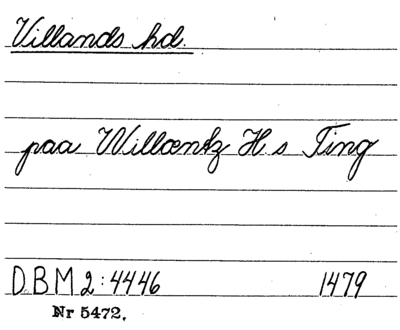 Villands hd.
paa Willæntz H s Ting
D.B.M 2:4446 1479
Nr 5472.